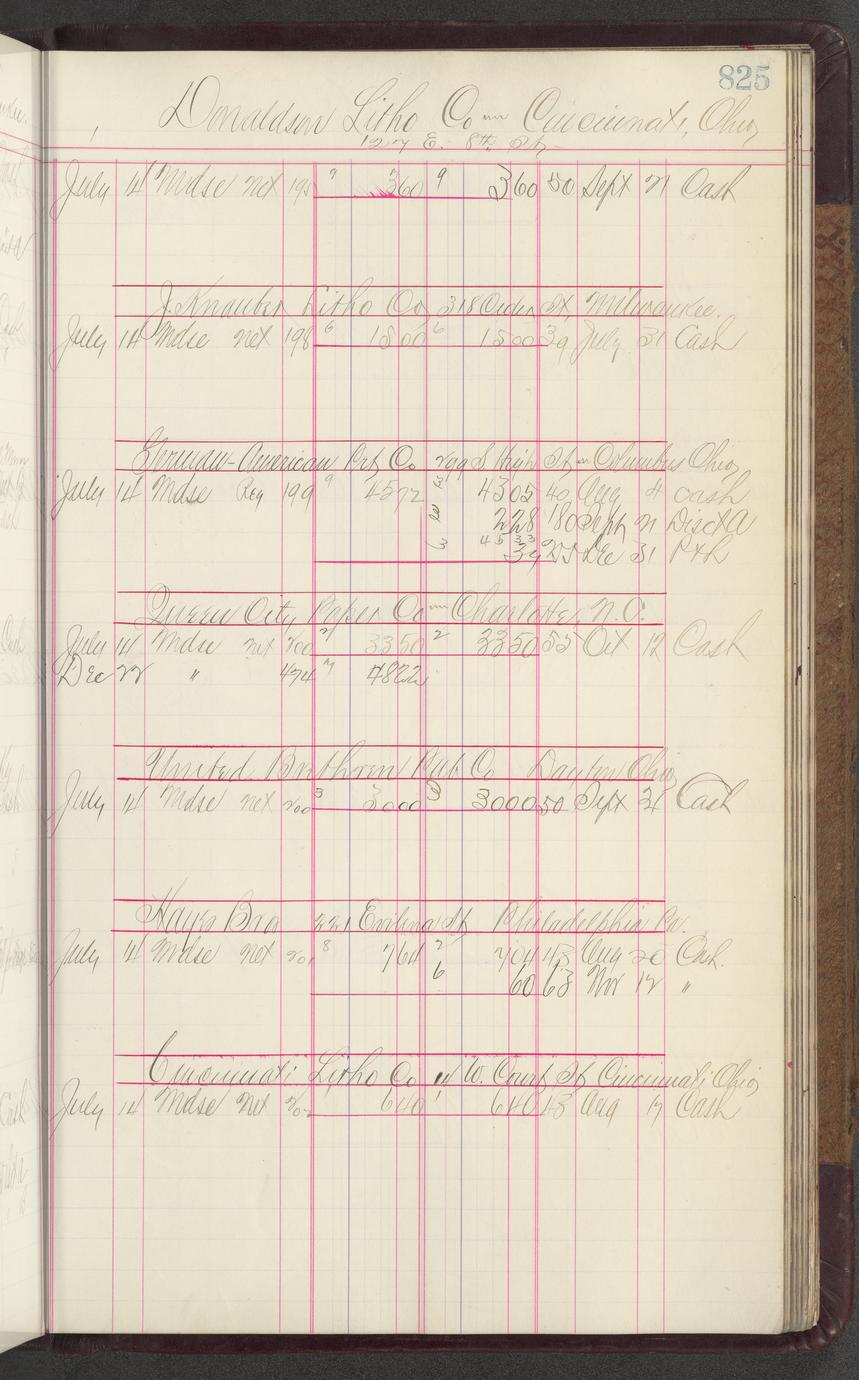 825
Donaldson Litho Co Cincinnati, Ohio
127 E. 8th St
July 14 Mdse net 195 9 360 9 360 50 Sept 21 Cash
J. Knauber Litho Co, 318 Cedar St, Milwaukee.
July 14 Mdse net 198 6 1500 6 1500 39 July 31 Cash
German-American Prtg Co 299 S High St Columbus Ohio
July 14 Mdse Reg 199 9 4572 4305 40 Aug 4 Cash
228 180 Sept 21 Disct A
4533
39 25 Dec 31 P&L
Queen City Paper Co Charlotte, N.C.
July 14 Mdse net 200 3350 2 3350 55 Oct 12 Cash
Dec 22 " 474 4822
United Brethren Pub Co Dayton Ohio
July 14 Mdse net 200 3 3000 3 3000 50 Sept 21 Cash
Hays Bro 221 St Philadelphia Pa.
July 14 Mdse net 201 8 764 2 704 43 Aug 20 Cash
6 60 63 Nov 12 "
Cincinnati Litho Co 14 W. Court St Cincinnati Ohio
July 14 Mdse Net 202 640 1 640 43 Aug 17 Cash